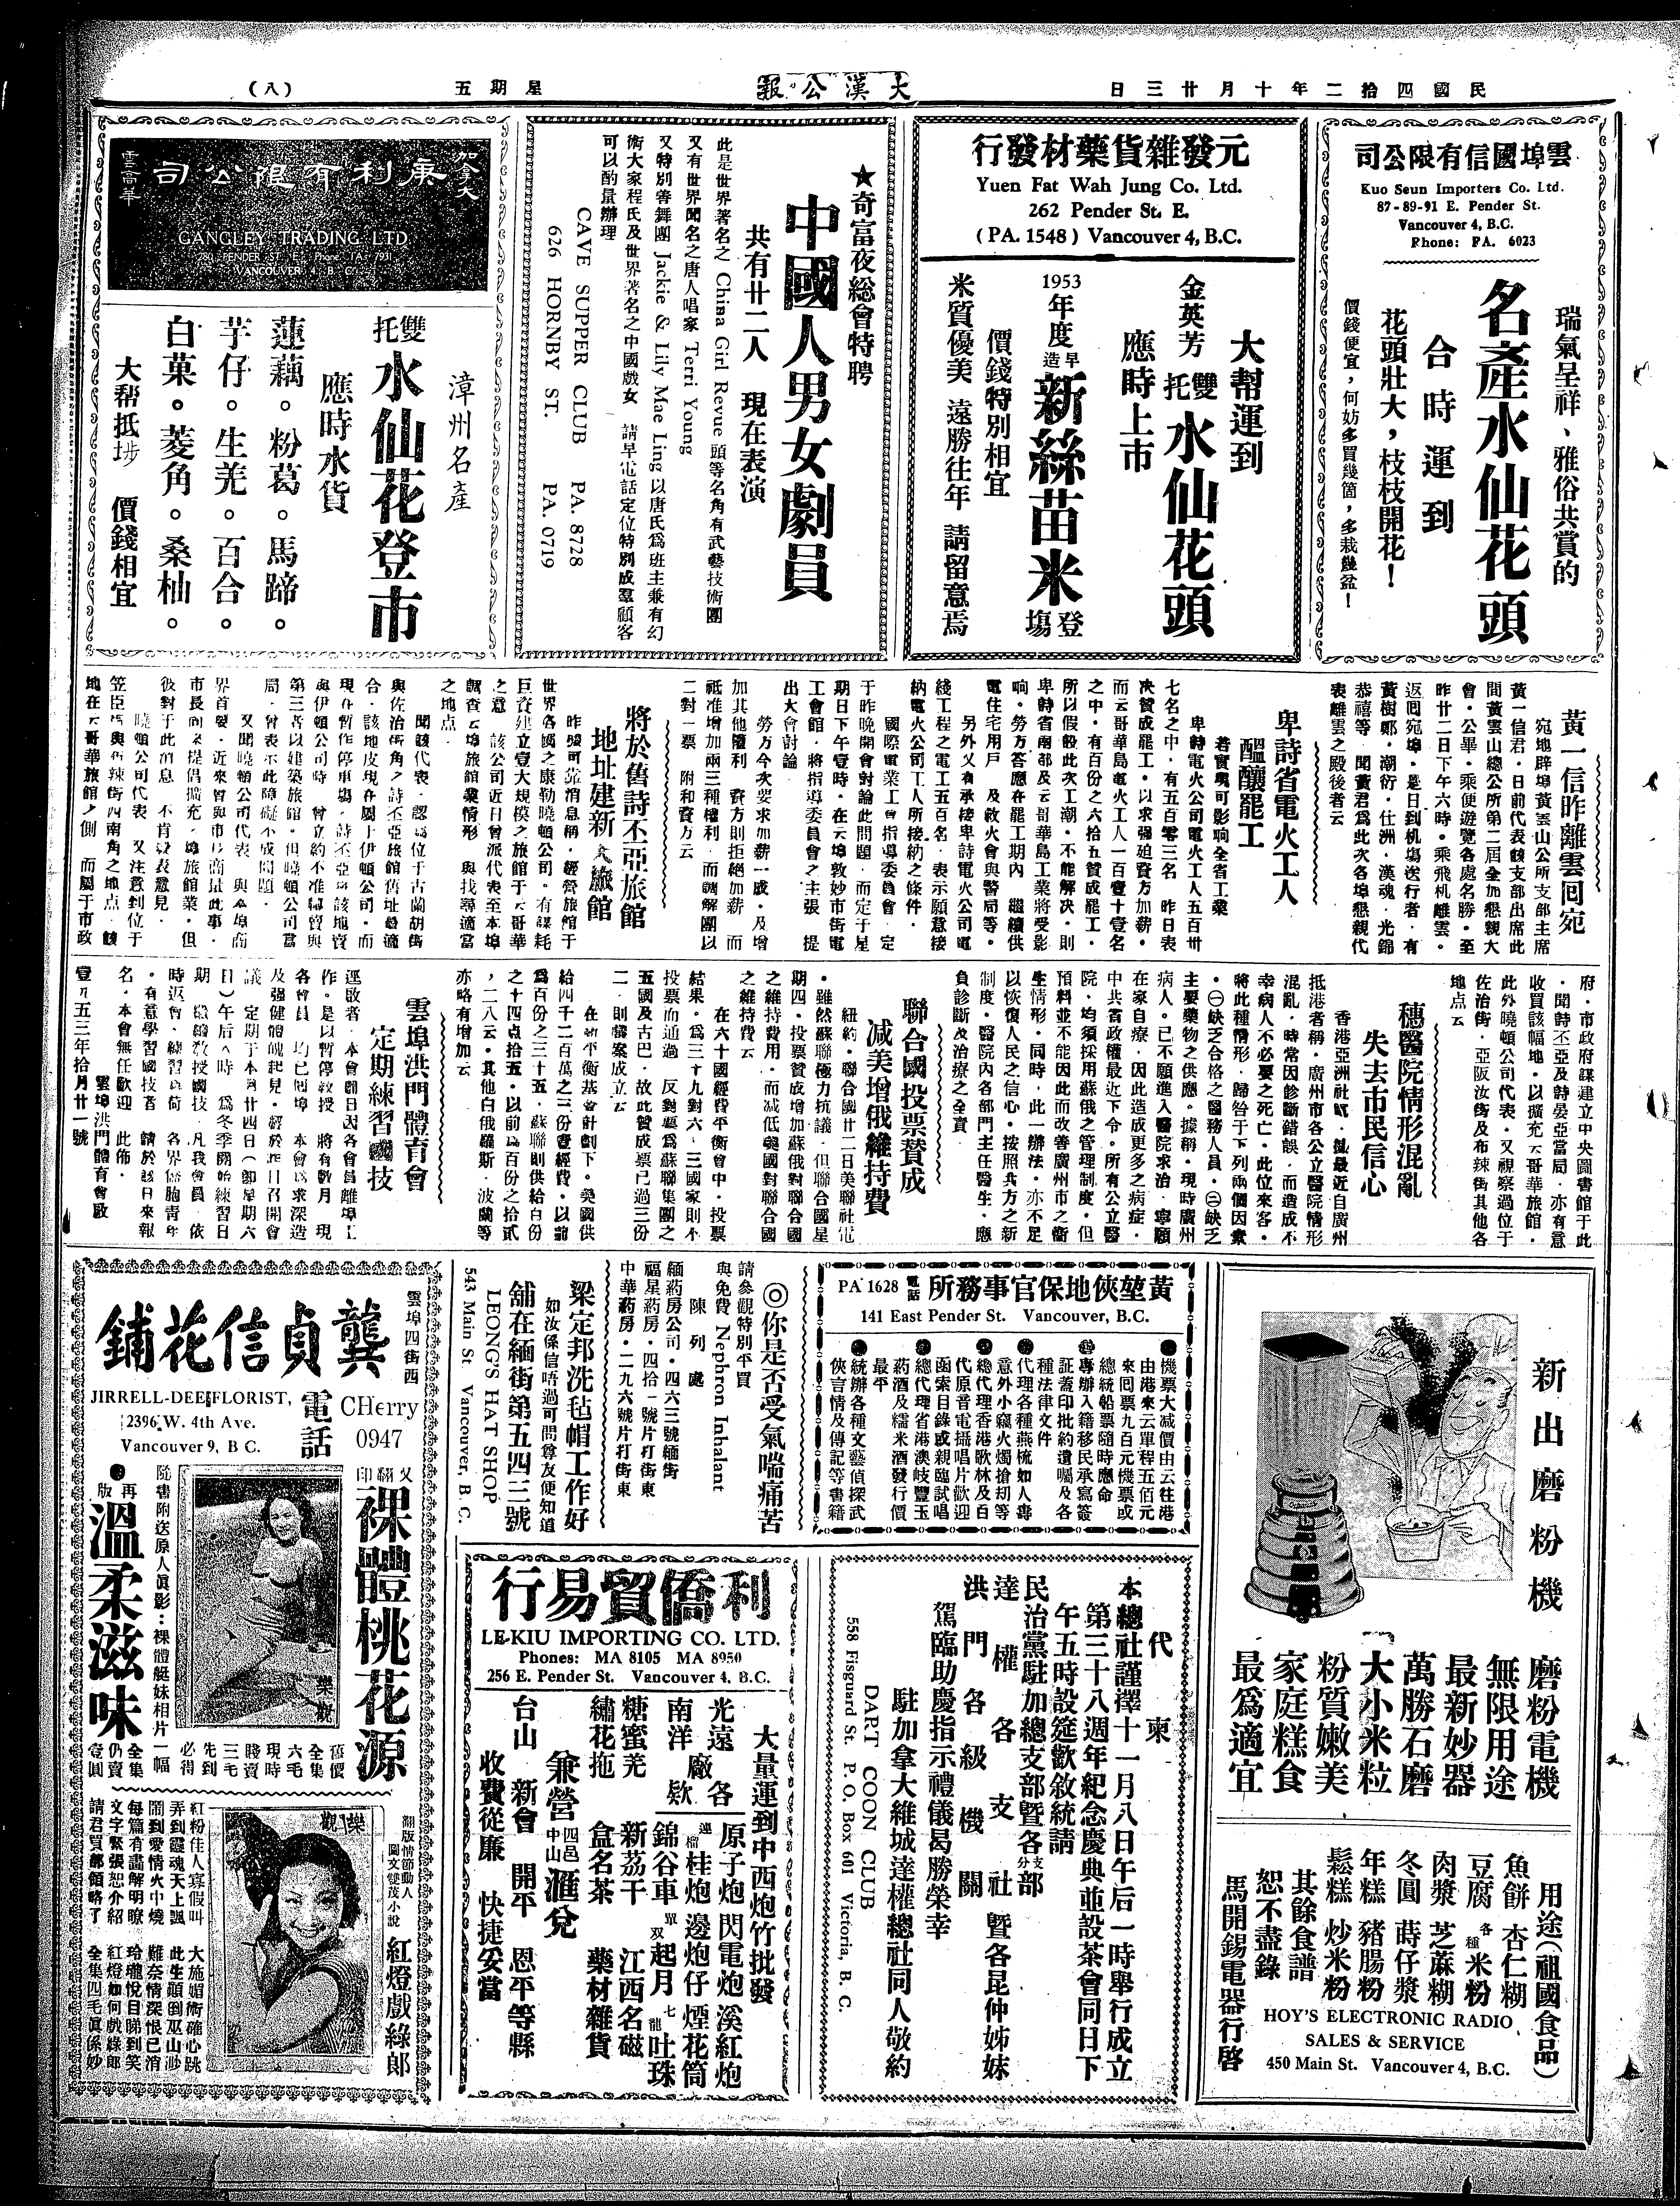 民國四拾二年十月廿三日
大漢公報
星期五
（八）
雲埠國信有限公司
Kuo Seun Importers Co. Ltd.
87-89-91 E. Pender St.
Vancouver 4, B.C.
Phone: PA. 6023
瑞氣呈祥、雅俗共賞的
名產水仙花頭
合時運到
花頭壯大，枝枝開花！
價錢便宜，何妨多買幾箇，多栽幾盆！
元發雜貨藥材發行
Yuen Fat Wah Jung Co. Ltd.
262 Pender St. E.
(PA. 1548) Vancouver 4, B.C.
大幫運到
金英芳雙托水仙花頭
應時上市
1953年度早造新絲苗米登塲
價錢特別相宜
米質優美 遠勝往年 請留意焉
★奇富夜総會特聘
中國人男女劇員
共有廿二人 現在表演
此是世界著名之 China Girl Revue 頭等名角有武藝技術團
又有世界聞名之唐人唱家 Terri Young
又特別善舞團 Jackie & Lily Mae Ling 以唐氏爲班主兼有幻
術大家程氏及世界著名之中國戲女 請早電話定位特別成羣顧客
可以酌量辦理
CAVE SUPPER CLUB PA. 8728
626 HORNBY ST. PA. 0719
加拿大
康利有限公司
雲高華
GANGLEY TRADING LTD.
280 PENDER ST. E. Phone TA. 7931
VANCOUVER 4, B.C.
漳州名産
雙托水仙花登市
應時水貨
蓮藕。粉葛。馬蹄。
芋仔。生羌。百合。
白菓。菱角。桑柚。
大幫抵埗 價錢相宜
黃一信昨離雲囘宛
宛地辟埠黃雲山公所支部主席
黃一信君，日前代表該支部出席此
間黃雲山總公所第二屆全加懇親大
會，公畢，乘便遊覽各處名勝，至
昨廿二日下午六時，乘飛机離雲，
返囘宛埠，是日到机塲送行者，有
黃樹鄕，潮衍，仕洲，漢魂，光錦
恭禧等，聞黃君爲此次各埠懇親代
表離雲之殿後者云
卑詩省電火工人
醞釀罷工
若實現可影响全省工業
卑詩電火公司電火工人五百卅
七名之中，有五百零三名，昨日表
決贊成罷工，以求強廹資方加薪，
而云哥華島電火工人一百壹十壹名
之中，有百份之六拾五贊成罷工，
所以假設此次工潮，不能解決，則
卑詩省南部及云哥華島工業將受影
响，勞方答應在罷工期內，繼續供
電住宅用戶，及救火會與醫局等，
另外又有承接卑詩電火公司電
綫工程之電工五百名，表示願意接
納電火公司工人所接納之條件，
國際電業工會指導委員會，定
于昨晚開會討論此問題，而定于星
期日下午壹時，在云埠敦妙市街電
工會館，將指導委員會之主張，提
出大會討論
勞方今次要求加薪一成，及增
加其他權利，資方則拒絕加薪，而
祗准增加兩三種權利，而調解團以
二對一票，附和資方云
將於舊詩丕亞旅館
地址建新大旅館
昨據可靠消息稱，經營旅館于
世界各國之康勒曉頓公司，有謀耗
巨資建立壹大規模之旅館于云哥華
之意，該公司近日曾派代表至本埠
調查云埠旅館業情形，與找尋適當
之地點，
聞該代表，認爲位于古蘭胡街
與佐治街角之詩丕亞旅館舊址最適
合，該地皮現在屬于伊頓公司，而
現在暫作停車塲，詩丕亞將該地賣
與伊頓公司時，曾立約不准轉賣與
第三者以建築旅館，但曉頓公司當
局，曾表示此障礙不成問題，
又聞曉頓公司代表，與本埠商
界首要，近來曾與市長商量此事，
市長向來提倡擴充本埠旅館業，但
彼對于此消息，不肯發表意見，
曉頓公司代表，又注意到位于
笠臣街與布辣街西南角之地點，該
地在云哥華旅館之側，而屬于市政
府，市政府謀建立中央圖書館于此
，聞詩丕亞及詩晏亞當局，亦有意
收買該幅地，以擴充云哥華旅館，
此外曉頓公司代表，又視察過位于
佐治街，亞阪汝街及布辣街其他各
地點云
穗醫院情形混亂
失去市民信心
香港亞洲社訊，據最近自廣州
抵港者稱，廣州市各公立醫院情形
混亂，時常因診斷錯誤，而造成不
幸病人不必要之死亡，此位來客，
將此種情形，歸咎于下列兩個因素
，㊀缺乏合格之醫務人員，㊁缺乏
主要藥物之供應，據稱，現時廣州
病人，已不願進入醫院求治，寧願
在家自療，因此造成更多之病症，
中共省政權最近下令，所有公立醫
院，均須採用蘇俄之管理制度，但
預料並不能因此而改善廣州市之衞
生情形，同時，此一辦法，亦不足
以恢復人民之信心，按照共方之新
制度，醫院內各部門主任醫生，應
負診斷及治療之全責，
聯合國投票贊成
减美增俄維持費
紐約，聯合國廿二日美聯社電
，雖然蘇聯極力抗議，但聯合國星
期四，投票贊成增加蘇俄對聯合國
之維持費用，而减低美國對聯合國
之維持費云
在六十國經費平衡會中，投票
結果，爲三十九對六，三國家則不
投票而通過，反對票爲蘇聯集團之
五國及古巴，故此贊成票已過三份
二，則議案成立云
在新平衡基金計劃下，美國供
給四千二百萬之三份壹經費，以前
爲百份之三十五，蘇聯則供給百份
之十四點拾五，以前爲百份之拾貳
，二八云，其他白俄羅斯，波蘭等
亦略有增加云
雲埠洪門體育會
定期練習國技
逕啟者，本會曩日因各會員離埠工
作，是以暫停敎授，將有數月，現
各會員，均已囘埠，本會爲求深造
及強健體魄起見，經於昨日召開會
議，定期于本月廿四日（卽星期六
日）午后八時，爲冬季開始練習日
期，繼續敎授國技，凡我會員，依
時返會，練習爲荷，各界僑胞青年
，有意學習國技者，請於該日來報
名，本會無任歡迎，此佈，
雲埠洪門體育會啟
壹九五三年拾月廿一號
新出磨粉機
磨粉電機
無限用途
最新妙器
萬勝石磨
大小米粒
粉質嫩美
家庭糕食
最爲適宜
用途（祖國食品）
魚餅 杏仁糊
豆腐 各種米粉
肉漿 芝蔴糊
冬圓 蒔仔漿
年糕 豬腸粉
鬆糕 炒米粉
其餘食譜
恕不盡錄
馬開錫電器行啓
HOY'S ELECTRONIC RADIO
SALES & SERVICE
450 Main St. Vancouver 4, B.C.
黃堃俠地保官事務所
電話 PA 1628
141 East Pender St. Vancouver, B.C.
機票大减價由云往港
由港來云單程五佰元
來囘票九百元機票或
總統船票隨時應命
專辦入籍移民承寫簽
証蓋印批約遺囑及各
種法律文件
代理各種燕梳如人壽
意外小竊火燭搶刧等
總代理香港歌林及百
代原音電攝唱片歡迎
函索目錄或親臨試唱
總代理省港澳岐豐玉
葯酒及糯米酒發行價
最平
統辦各種文藝偵探武
俠言情及傳記等書籍
◎你是否受氣喘痛苦
請參觀特別平買
與免費 Nephron Inhalant
陳列處
緬葯房公司・四六三號緬街
福星葯房・四拾一號片打街東
中華葯房・二九六號片打街東
梁定邦洗毡帽工作好
如汝係信唔過可問尊友便知道
舖在緬街第五四三號
LEONG'S HAT SHOP
543 Main St. Vancouver, B.C.
代柬
本總社謹擇十一月八日午后一時舉行成立
第三十八週年紀念慶典並設茶會同日下
午五時設筵歡敘統請
民治黨駐加總支部暨各支分部
達權各支社暨各昆仲姊妹
洪門各級機關
駕臨助慶指示禮儀曷勝榮幸
駐加拿大維城達權總社同人敬約
DART COON CLUB
558 Fisguard St. P. O. Box 601 Victoria, B. C.
利僑貿易行
LE-KIU IMPORTING CO. LTD.
Phones: MA 8105 MA 8950
256 E. Pender St. Vancouver 4, B.C.
大量運到中西炮竹批發
光遠南洋廠各欵
原子炮 閃電炮 溪紅炮
連檔桂炮 邊炮仔 煙花筒
錦谷車 單双起月 七龍吐珠
糖蜜羌 新荔干 江西名磁
繡花拖 盒名茶 藥材雜貨
兼營四邑中山滙兌
台山 新會 開平 恩平等縣
收費從廉 快捷妥當
雲埠四街西
龔貞信花鋪
JIRRELL-DEE FLORIST,
2396 W. 4th Ave.
Vancouver 9, B C.
電話
CHerry
0947
又翻印裸體桃花源
●再版溫柔滋味
隨書附送原人眞影：裸體艇妹相片一幅
樂觀
舊價全集六毛現時賤賣三毛先到必得
全集仍賣壹圓
翻版情節動人
圖文雙茂小說
紅燈戲綠郎
樂觀
紅粉佳人寡假叫 大施媚術確心跳
弄到靈魂天上飄 此生顚倒巫山渺
鬧到愛情火中燒 難奈情深恨已消
每篇有講解明瞭 玲瓏悅目睇到笑
文字緊張恕介紹 紅燈如何戲綠郎
請君買部領略了 全集四毛眞係妙